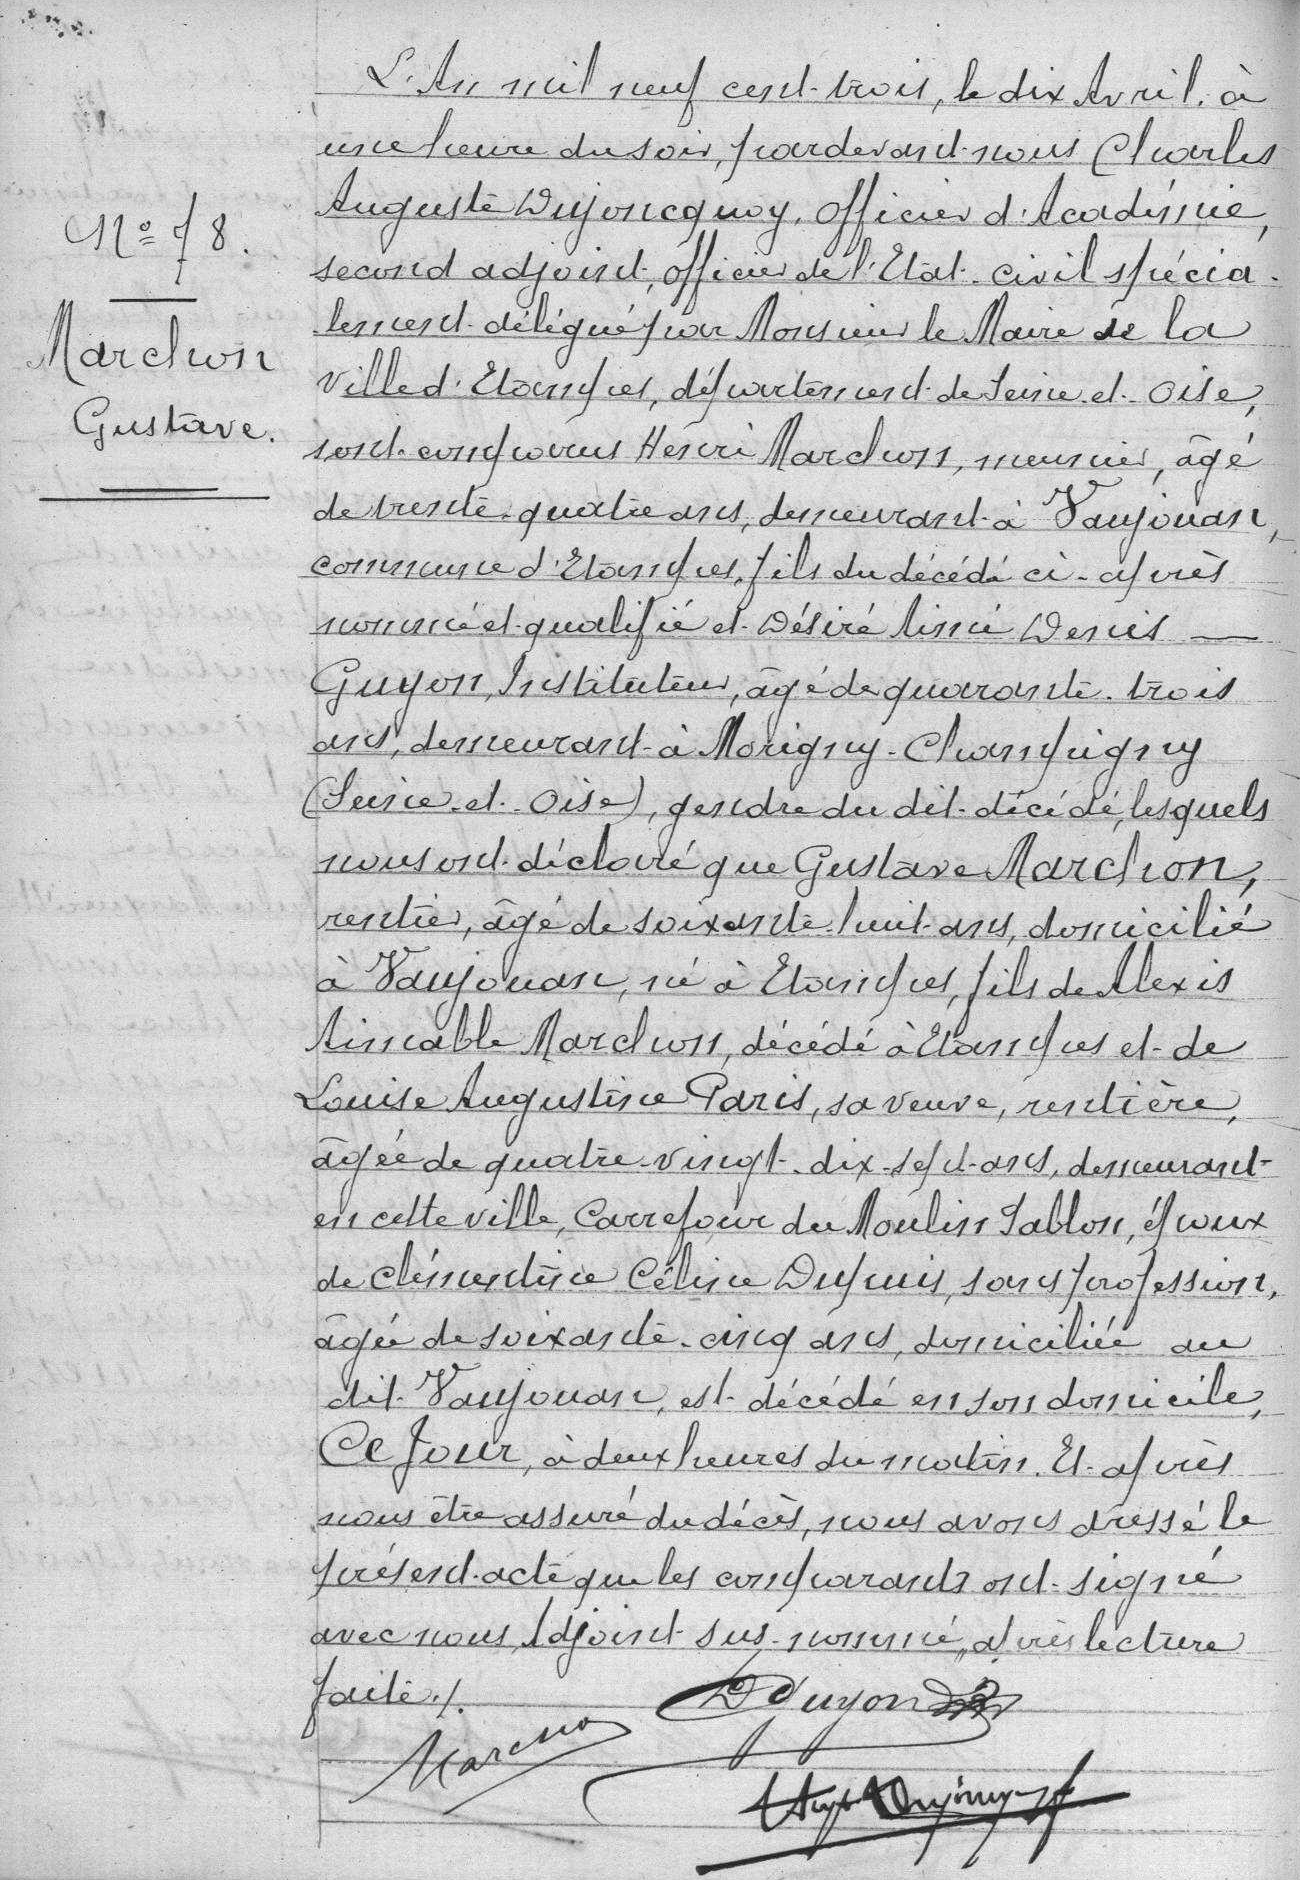 N° 78.
Marchon
Gustave.
L'An mil neuf cent trois, le dix Avril, à
une heure du soir, pardevant nous Charles
Auguste Dujoncquoy, officier d'Académie,
second adjoint, officier de l'Etat-civil spécia-
lement délégué par Monsieur le Maire de la
ville d'Etampes, département de Seine-et-Oise,
sont comparus Henri Marchon, meunier, âgé
de trente-quatre ans, demeurant à Vaujouan,
commune d'Etampes, fils du décédé ci-après
nommé et qualifié et Désiré Aimé Denis —
Guyon, Instituteur, âgé de quarante-trois
ans, demeurant à Morigny-Champigny
(Seine-et-Oise), gendre du dit décédé, lesquels
nous ont déclaré que Gustave Marchon,
rentier, âgé de soixante-huit ans, domicilié
à Vaujouan, né à Etampes, fils de Alexis
Aimable Marchon, décédé à Etampes et de
Louise Augustine Paris, sa veuve, rentière,
âgée de quatre-vingt-dix-sept ans, demeurant
en cette ville, Carrefour du Moulin Sablon, époux
de Clémentine Céline Dupuis, sans profession,
âgée de soixante-cinq ans, domiciliée au
dit Vaujouan, est décédé en son domicile,
Ce Jour, à deux heures du matin. Et après
nous être assuré du décès, nous avons dressé le
présent acte que les comparants ont signé
avec nous, Adjoint sus-nommé, après lecture
faite./.
DGuyon
Marchon
Augte Dujoncquoy